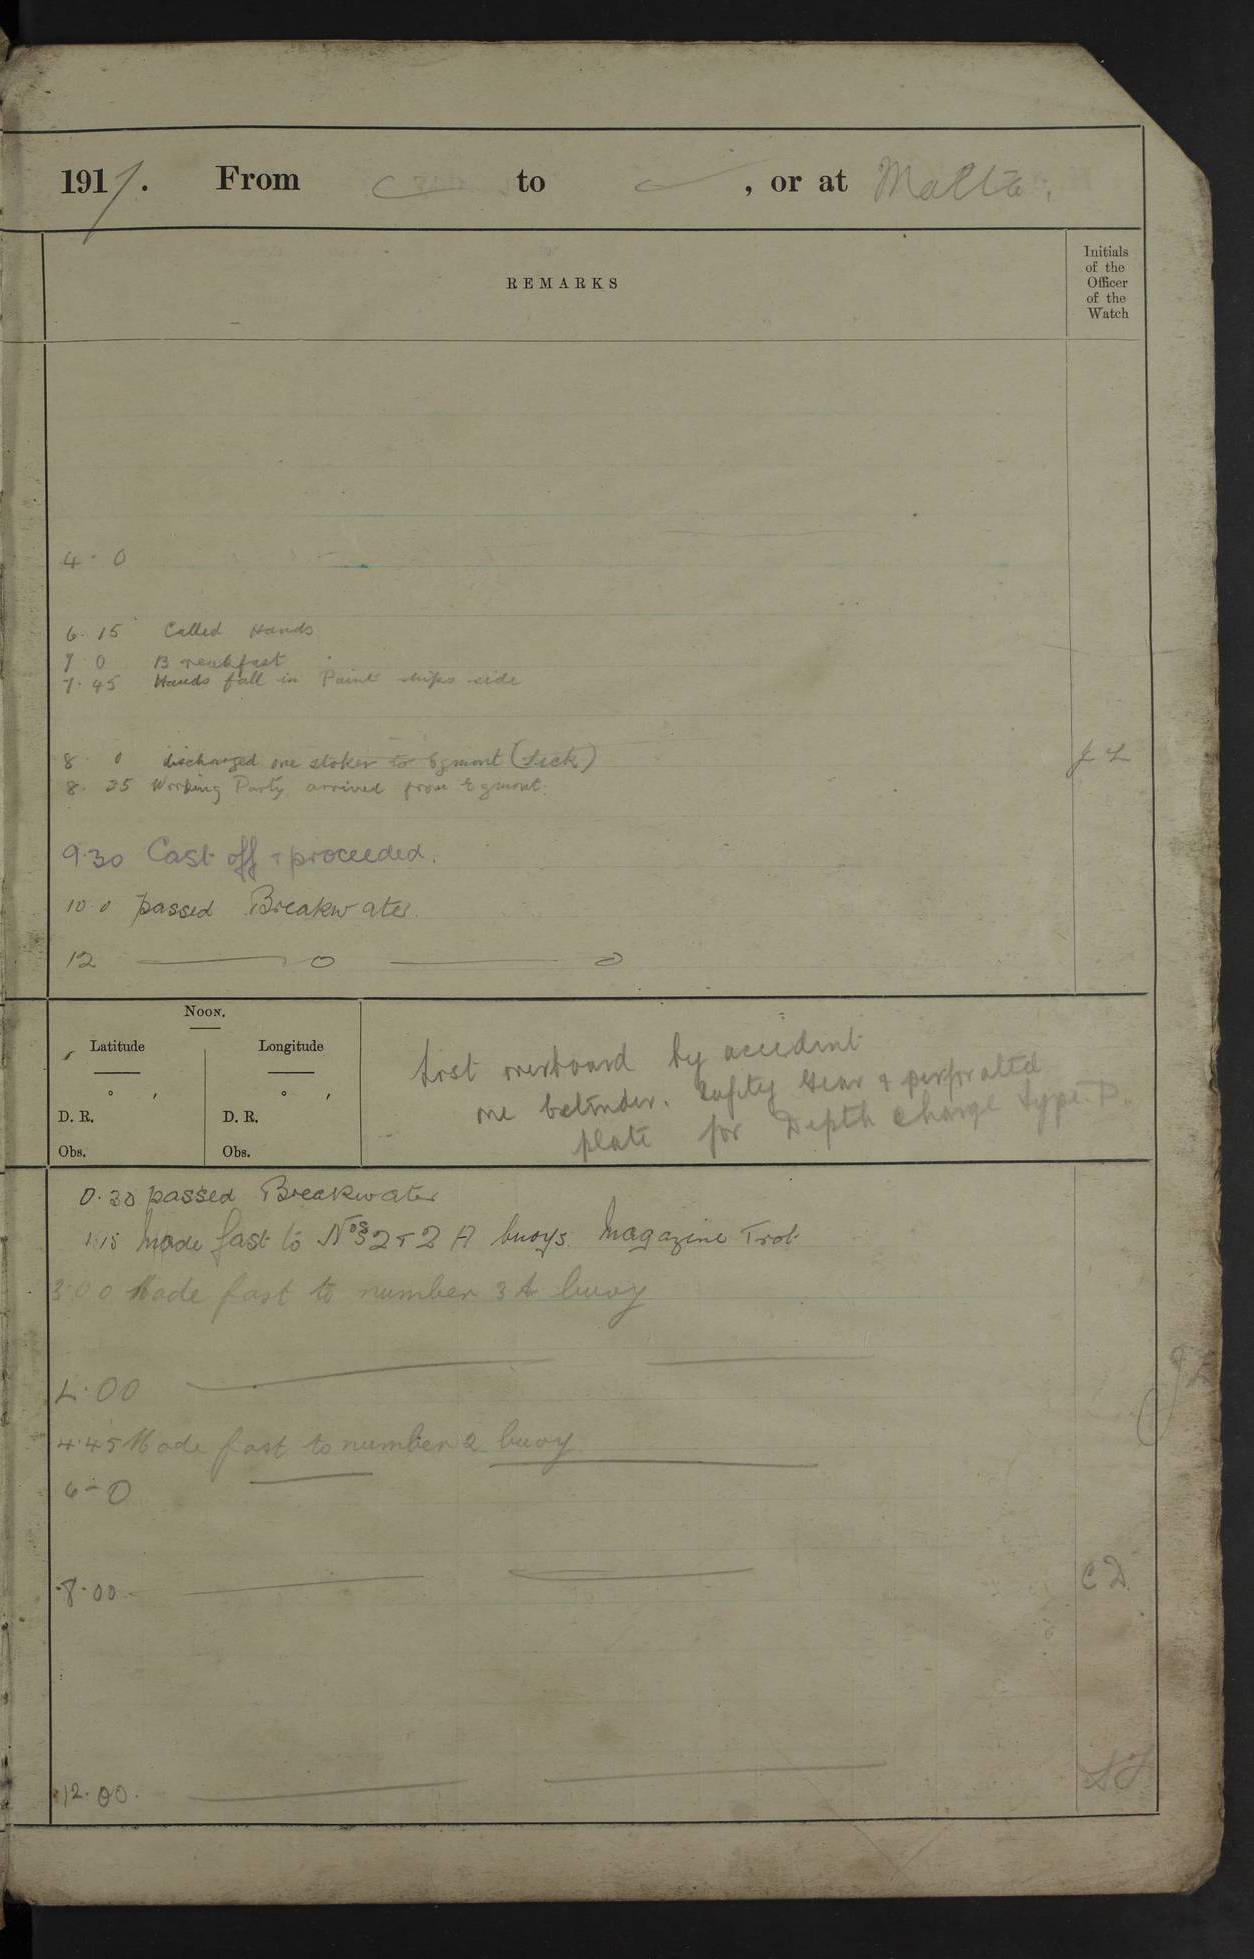 1917. From to , or at Malta.
REMARKS
Initials of the Officer of the Watch
4. 0
6. 15 Called Hands
7 0 Breakfast
7. 45 Hands fall in Paint ships side
8. 0 discharged one stoker to Egmont (Sick) J L
8. 25 Working Party arrived from Egmont.
9.30 Cast off & proceeded.
10.0 passed Breakwater.
12
NOON.
Latitude Longitude
° ' ° '
D. R. D. R.
Obs. Obs.
Lost overboard by accident
one . Safety Gear & perforated
plate for Depth Charge type D.
0.30 passed Breakwater
1.15 Made fast to Nos 2 & 2 A buoys. Magazine Trot
3.00 Made fast to number 3A buoy
4.00 J L
4.45 Made fast to number 2 buoy
6-0
8.00 C D
12.00